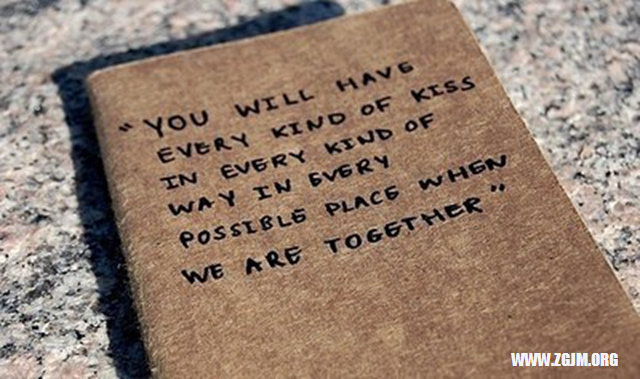 "YOU WILL HAVE
EVERY KIND OF KISS
IN EVERY KIND OF
WAY IN EVERY
POSSIBLE PLACE WHEN
WE ARE TOGETHER"
WWW.ZGJM.ORG